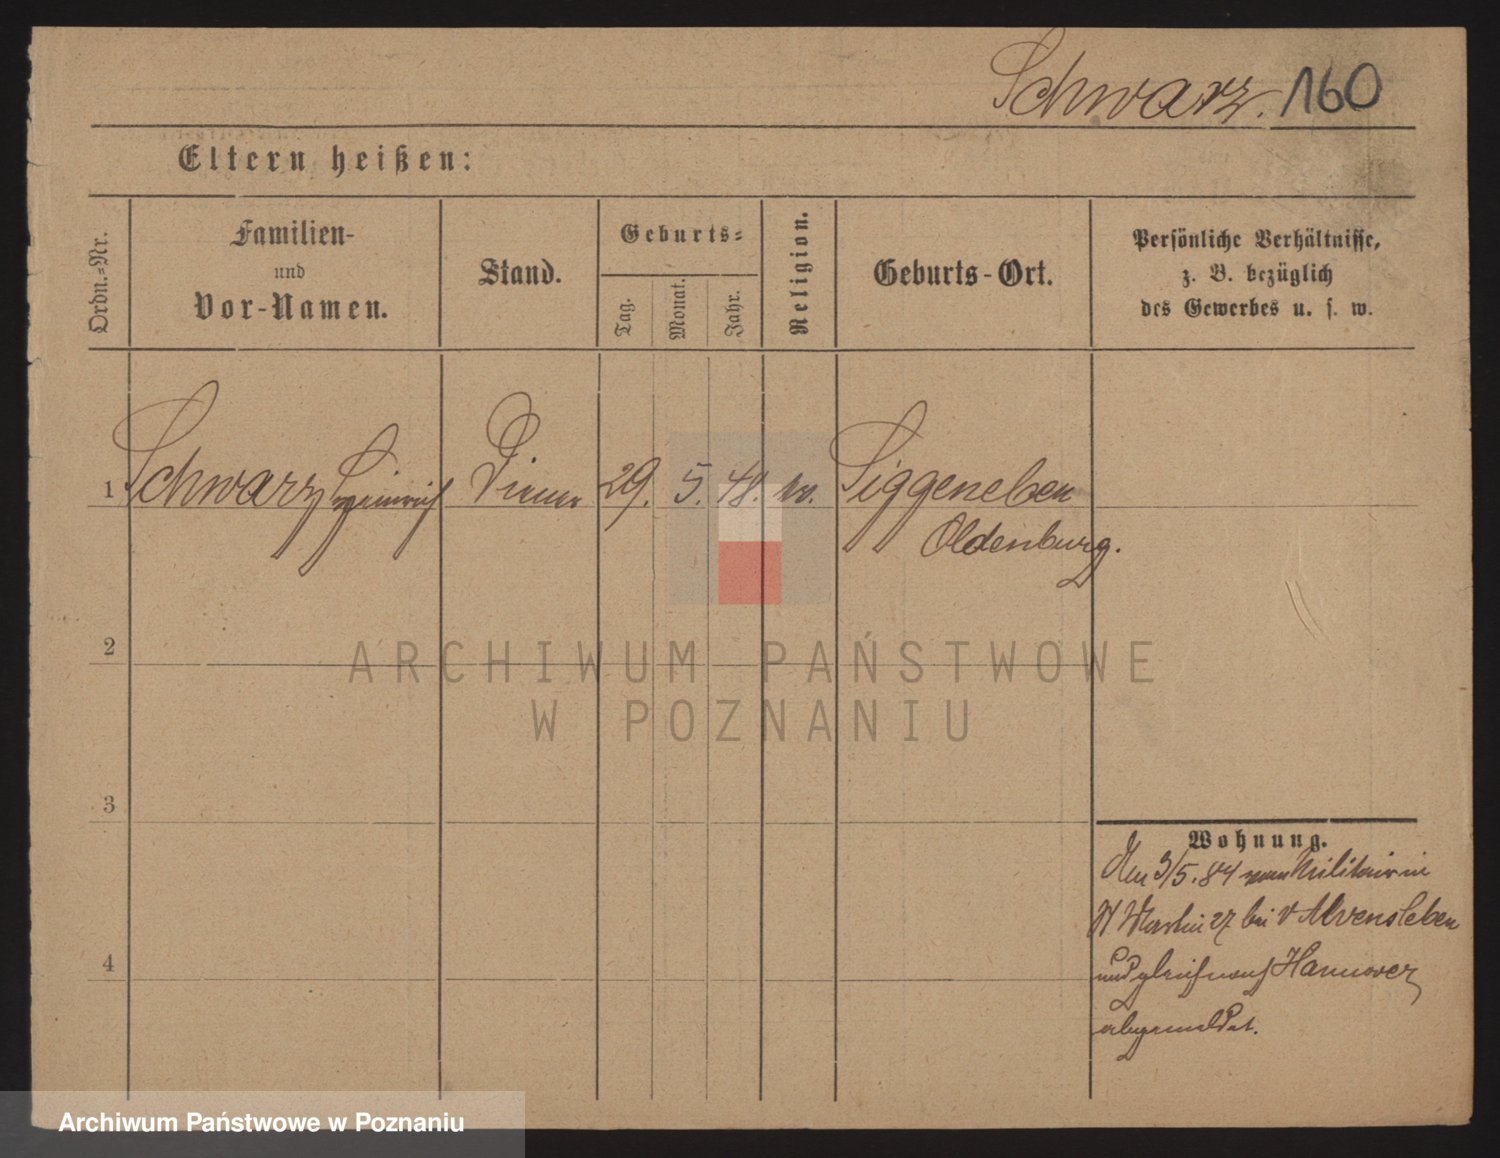 Schwarz. 160
Eltern heißen:
Ordn.=Nr.
Familien-
und
Vor-Namen.
Stand.
Geburts=
Tag.
Monat.
Jahr.
Religion.
Geburts-Ort.
Persönliche Verhältnisse,
z. B. bezüglich
des Gewerbes u. s. w.
1 Schwarz Heinrich Diener 29. 5. 48. Siggeneben
Oldenburg.
2
ARCHIWUM PAŃSTWOWE
W POZNANIU
3
Wohnung.
Am 3/5. 84 vom Militair in
St Martin 27 bei v Alvensleben
4
und gleich nach Hannover
abgemeldet.
Archiwum Państwowe w Poznaniu